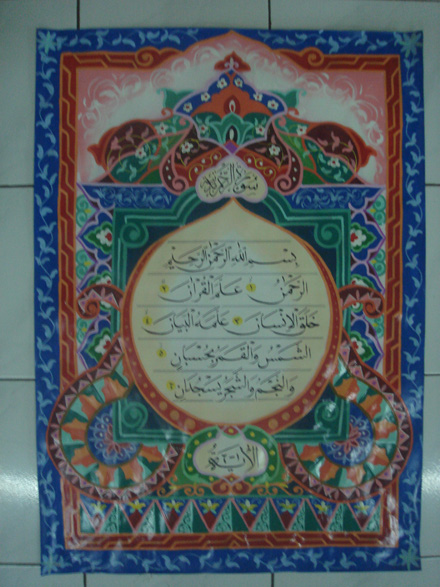 سورة
بِسْمِ اللهِ الرَّحْمٰنِ الرَّحِيْمِ
الرَّحْمٰنُ ١ عَلَّمَ الْقُرْآنَ ٢
خَلَقَ الْإِنْسَانَ ٣ عَلَّمَهُ الْبَيَانَ ٤
الشَّمْسُ وَالْقَمَرُ بِحُسْبَانٍ ٥
وَالنَّجْمُ وَالشَّجَرُ يَسْجُدَانِ ٦
الآية